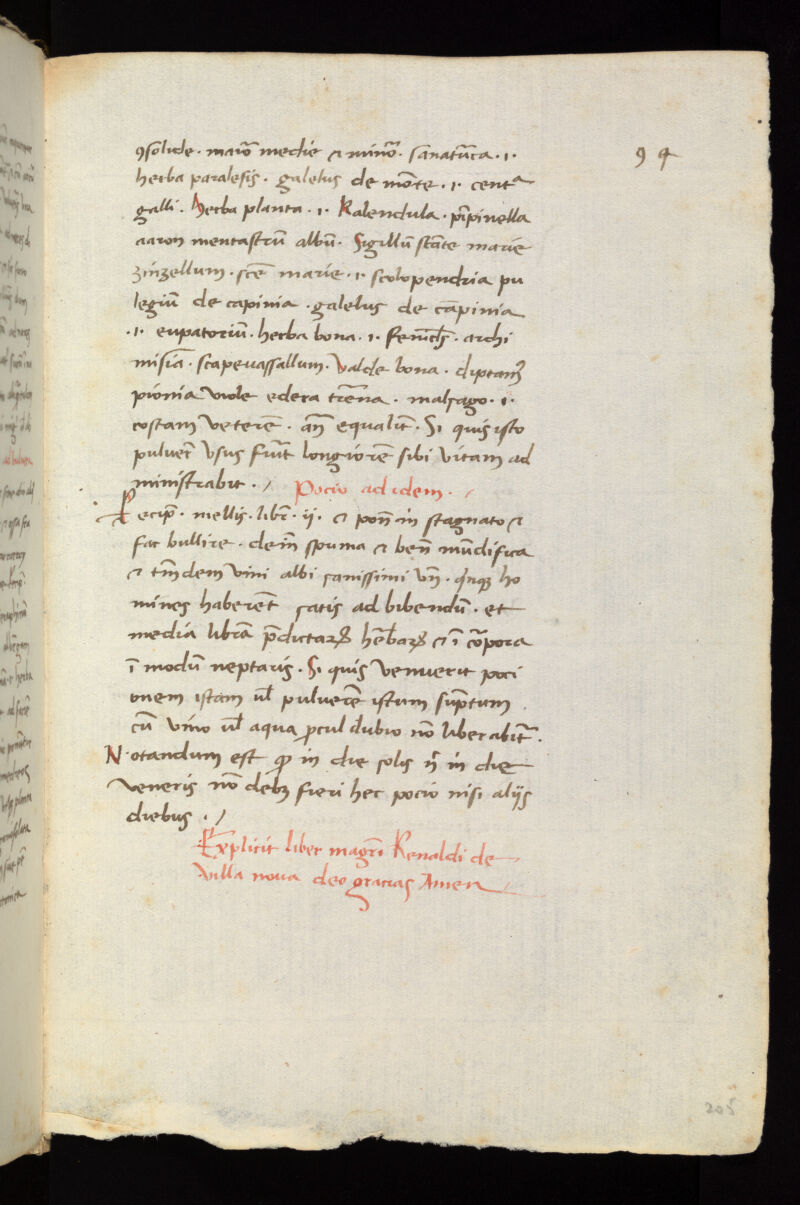 9solide · maiō medie & minō2 · sanatūca · i ·
94
herba paralesis · galetus de mōte · i · centᵃ
galli · herba planta · i · Kalendula · pīpinella
aaron mentastrū albū · Sigillū stāte marie
zinzellum · scē marie · i · scolopendria pu
legiū de capinia · galetus de cāpinia
· i · eupatoriū · herba bona · i · · archi
misiā · scapevassallum · valde bona · diptam̄
pionia viole edera trēna · malfago · i ·
costam veterē · an̄ equalit̄ · Si quis isto
pulver̄ usus fuīt longiorē sibi vitam ad
ministrabit · / Pocio ad idem · /
Recip̄ · mellis · libr̄ · ij · & pon̄ in stagnato &
fac bullire · dein̄ spuma & ben̄ mūdifica
& tm̄dem vini albi sanissimi un̄ · qnqȝ ho
mines haberēt satis ad bibendū · et
media librā p̄dictaꝝ herbaꝝ & ī cōpora
ī modū neptaris · Si quis venuerit poci
onem istam ul̄ pulverē istum sūptum
cū vino ul̄ aqua procul dubio nō liberabit̄ ·
Notandum est ꝙ in die solis n̄ in die
veneris nō debȝ fieri hec pocio nisi alijs
diebus · /
Explicit liber magrī Renaldi de
villa nova deo gracias Amen
205